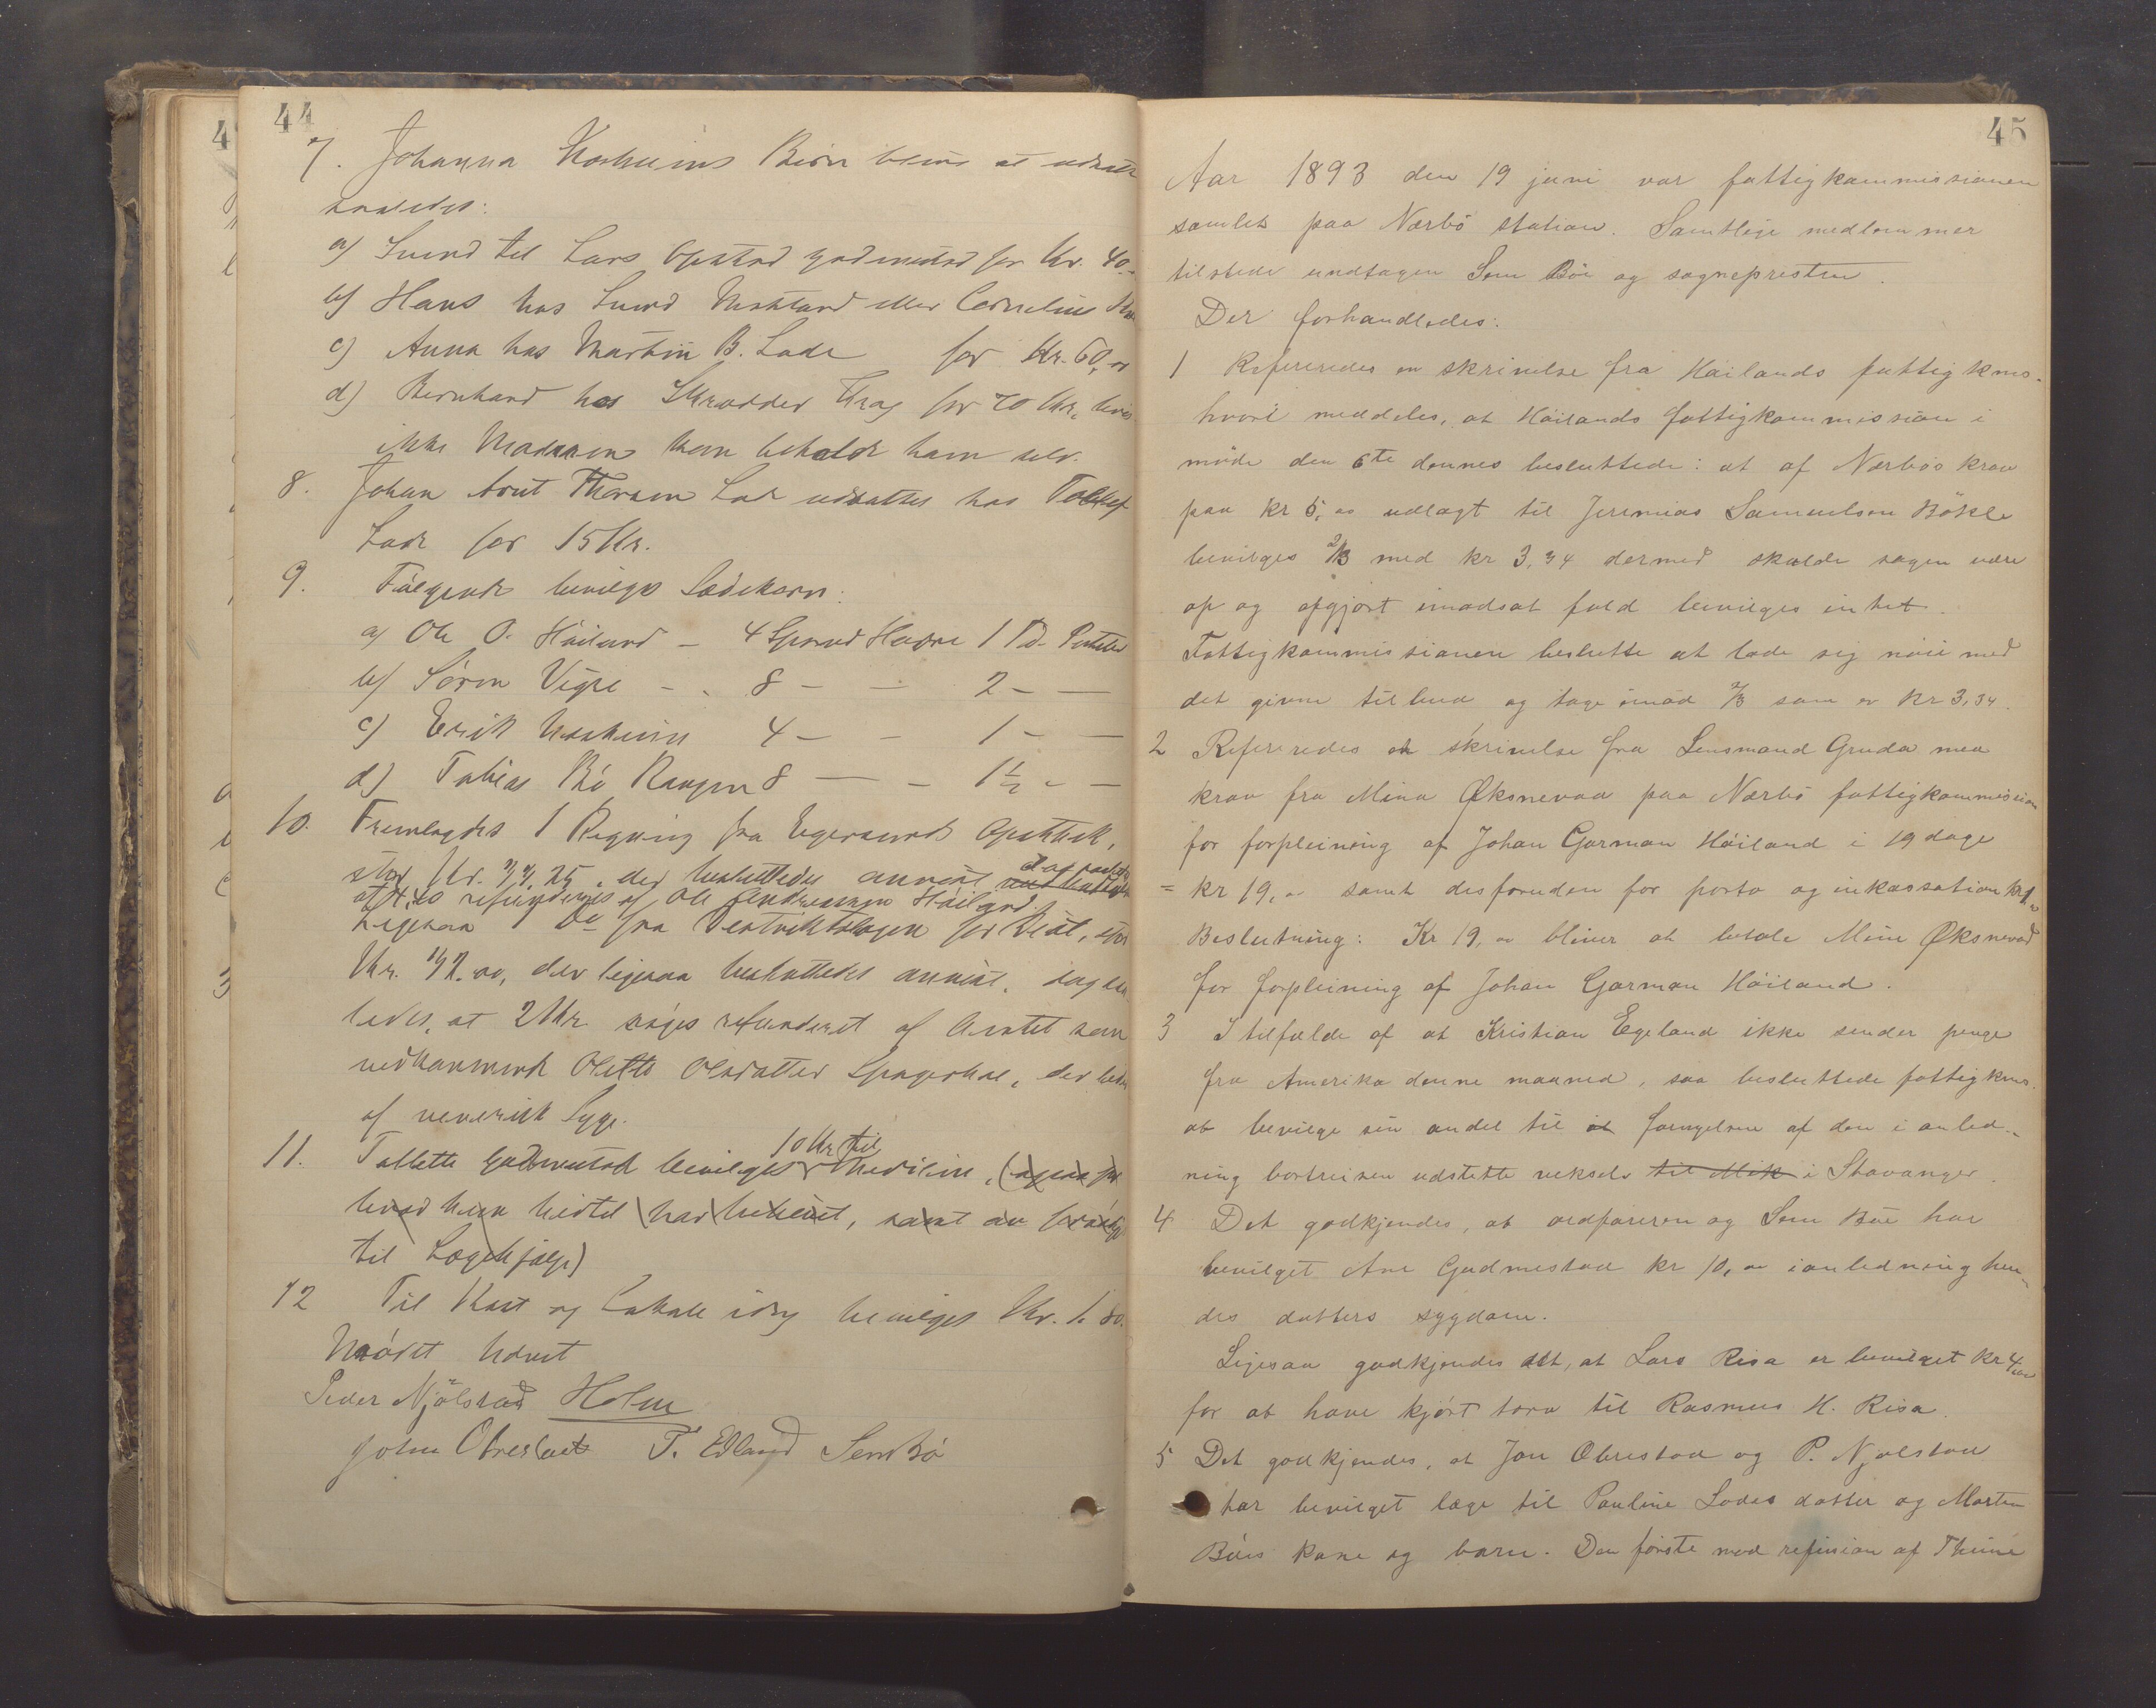 44
7. Johanna Børn at udsatte
saaledes:
a) Svend til Lars Opstad Godmestad for Kr. 40.-
b) Hans hos Svend eller Cornelius
c) Anna hos Martin B. Lode for Kr. 60,00
d) Bernhard hos Skrædder for 70 Kr, hvis
ikke Madammen beholde ham selv.
8. Johan Arnt Thorsen Lode udsættes hos Tollef
Lode for 15 Kr.
9. Følgende bevilges Sædekorn:
a) Ole O. Høiland – 4 Spand Havre 1 Td. Poteter
b) Sören Vigre - - 8 — — 2 — —
c) Erik 4 — - 1 - —
d) Tobias Bö Haugen 8 — - 1½ - —
10. Fremlagdes 1 Regning fra Egersunds Apothek,
stor Kr. 25, der besluttedes anvist
refunderes af Ole Andreassen Høiland.
Ligesaa 1 Do fra Destriktslægen for Diæt, stor
Kr. 12.00, der ligesaa besluttedes anvist,
ledes, at 2 Kr søges refunderet af Amtet som
vedkommende Olette Olsdatter, der lider
af venerisk Syge.
11. Tollette Godmestad bevilges 10 Kr til Medicin,
hvad hun hidtil har, samt
til Lægehjælp)
12 Til Kost og Lokale idag bevilges Kr. 1.80.
Mødet hævet
Peder Njølstad Holm
John Obrestad T. Edland Sem Bø
45
Aar 1893 den 19 juni var fattigkommissionen
samlet paa Nærbö station. Samtlige medlemmer
tilstede undtagen Sem Böe og sognepresten.
Der forhandledes:
1 Refereredes en skrivelse fra Höilands fattigkms.
hvori meddeles, at Höilands fattigkommission i
möde den 6te dennes besluttede: at af Nærbös krav
paa kr 5,00 udlagt til Jeremias Samuelsen Bökle
bevilges 2/3 med kr 3,34 dermed skulde sagen være
op og afgjort imodsat fald bevilges intet.
Fattigkommissionen beslutte at lade sig nöie med
det givne tilbud og tage imod 2/3 som er Kr 3,34.
2 Refereredes en skrivelse fra Lensmand Gruda med
krav fra Mina Øksnevad paa Nærbö fattigkommission
for forpleining af Johan Garman Höiland i 19 dage
= kr 19,00 samt desforuden for porto og inkassation kr 1,00
Beslutning: Kr 19,00 bliver at betale Mine Øksnevad
for forpleining af Johan Garman Höiland.
3 I tilfælde af at Kristian Egeland ikke sender penge
fra Amerika denne maaned, saa besluttede fattigkms.
at bevilge sin andel til at fornyelsen af den i anled-
ning bortreisen udstette veksels til Mik i Stavanger.
4 Det godkjendes, at ordföreren og Sem Böe har
bevilget Ane Gudmestad kr 10,00 i anledning hen-
des datters sygdom.
Ligesaa godkjendes det, at Lars Risa er bevilget kr 4,00
for at have kjørt törv til Rasmus H. Risa.
5 Det godkjendes, at Jon Obrestad og P. Njølstad
har bevilget læge til Pauline Lodes datter og Morten
Böes kone og barn. Den förste mod refusion af Thime